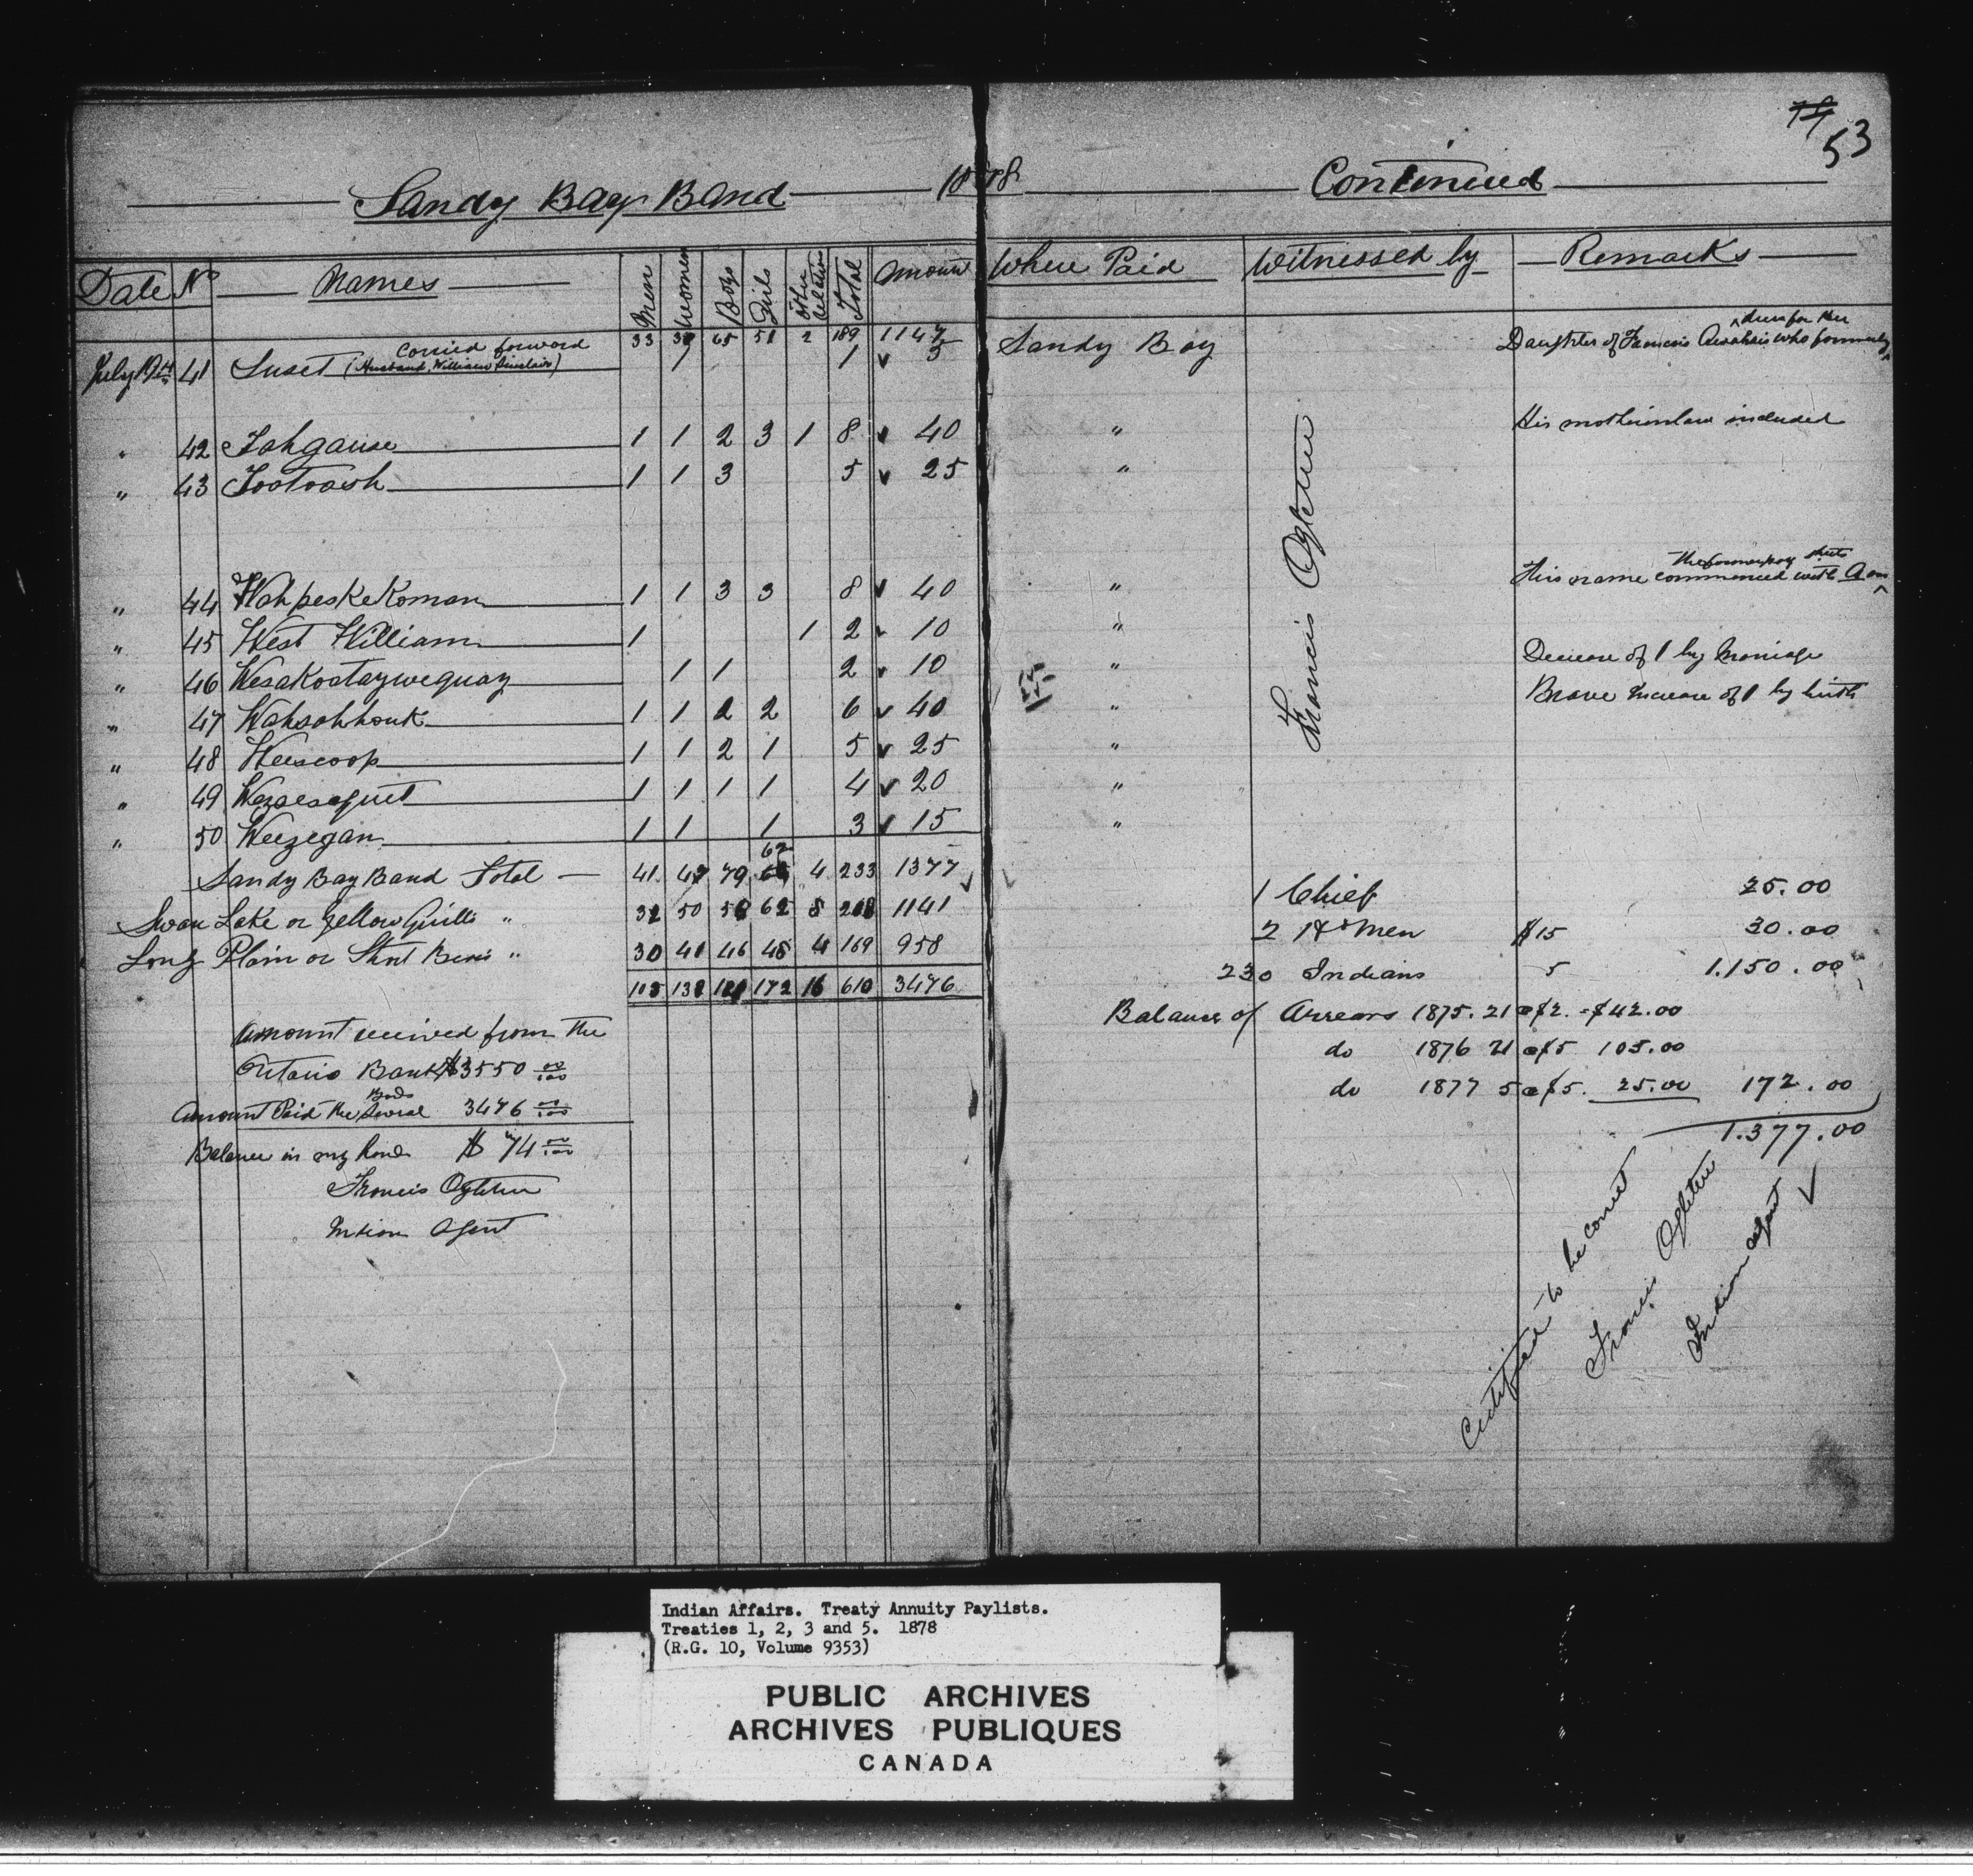 53
Sandy Bay Band 1878 Continued
Date No Names Men Women Boys Girls Other Relation Total Amount Where Paid Witnessed by Remarks
Carried forward 33 65 51 2 189 1147
drew for her
July 19th 41 Suset (Husband William Sinclair) 1 1 5 Sandy Bay Daughter of Francis who formerly
" 42 Tahgause 1 1 2 3 1 8 40 " His motherinlaw included
" 43 Tootoosh 1 1 3 5 25 "
the former pay sheets
" 44 WahpeskeKoman 1 1 3 3 8 40 " This name commenced with A on
" 45 West William 1 1 2 10 "
" 46 Wesakootaywequay 1 1 2 10 " Decrease of 1 by Marriage
" 47 Wahsahhouk 1 1 2 2 6 40 " Brave Increase of 1 by birth
" 48 Weescoop 1 1 2 1 5 25 "
" 49 Wezaesequet 1 1 1 1 4 20 "
" 50 Weezegan 1 1 1 3 15 "
Francis Ogletree
62
Sandy Bay Band Total 41 47 79 4 233 1377
Swan Lake or Yellow Quills " 32 50 62 8 1141
Long Plain or Short Bears " 30 41 46 48 4 169 958
138 172 16 610 3476
Amount received from the
Ontario Bank $3550 00/100
Bands
Amount Paid the Several 3476 00/100
Balance in my hands $ 74 00/100
Francis Ogletree
Indian Agent
1 Chief 25.00
2 Hd Men $15 30.00
230 Indians 5 1.150.00
Balance of Arrears 1875. 21 @ $2. = $42.00
do 1876 21 @ $5 105.00
do 1877 5 @ $5. 25.00 172.00
1.377.00
Certified to be correct
Francis Ogletree
Indian agent
Indian Affairs. Treaty Annuity Paylists.
Treaties 1, 2, 3 and 5. 1878
(R.G. 10, Volume 9353)
PUBLIC ARCHIVES
ARCHIVES PUBLIQUES
CANADA